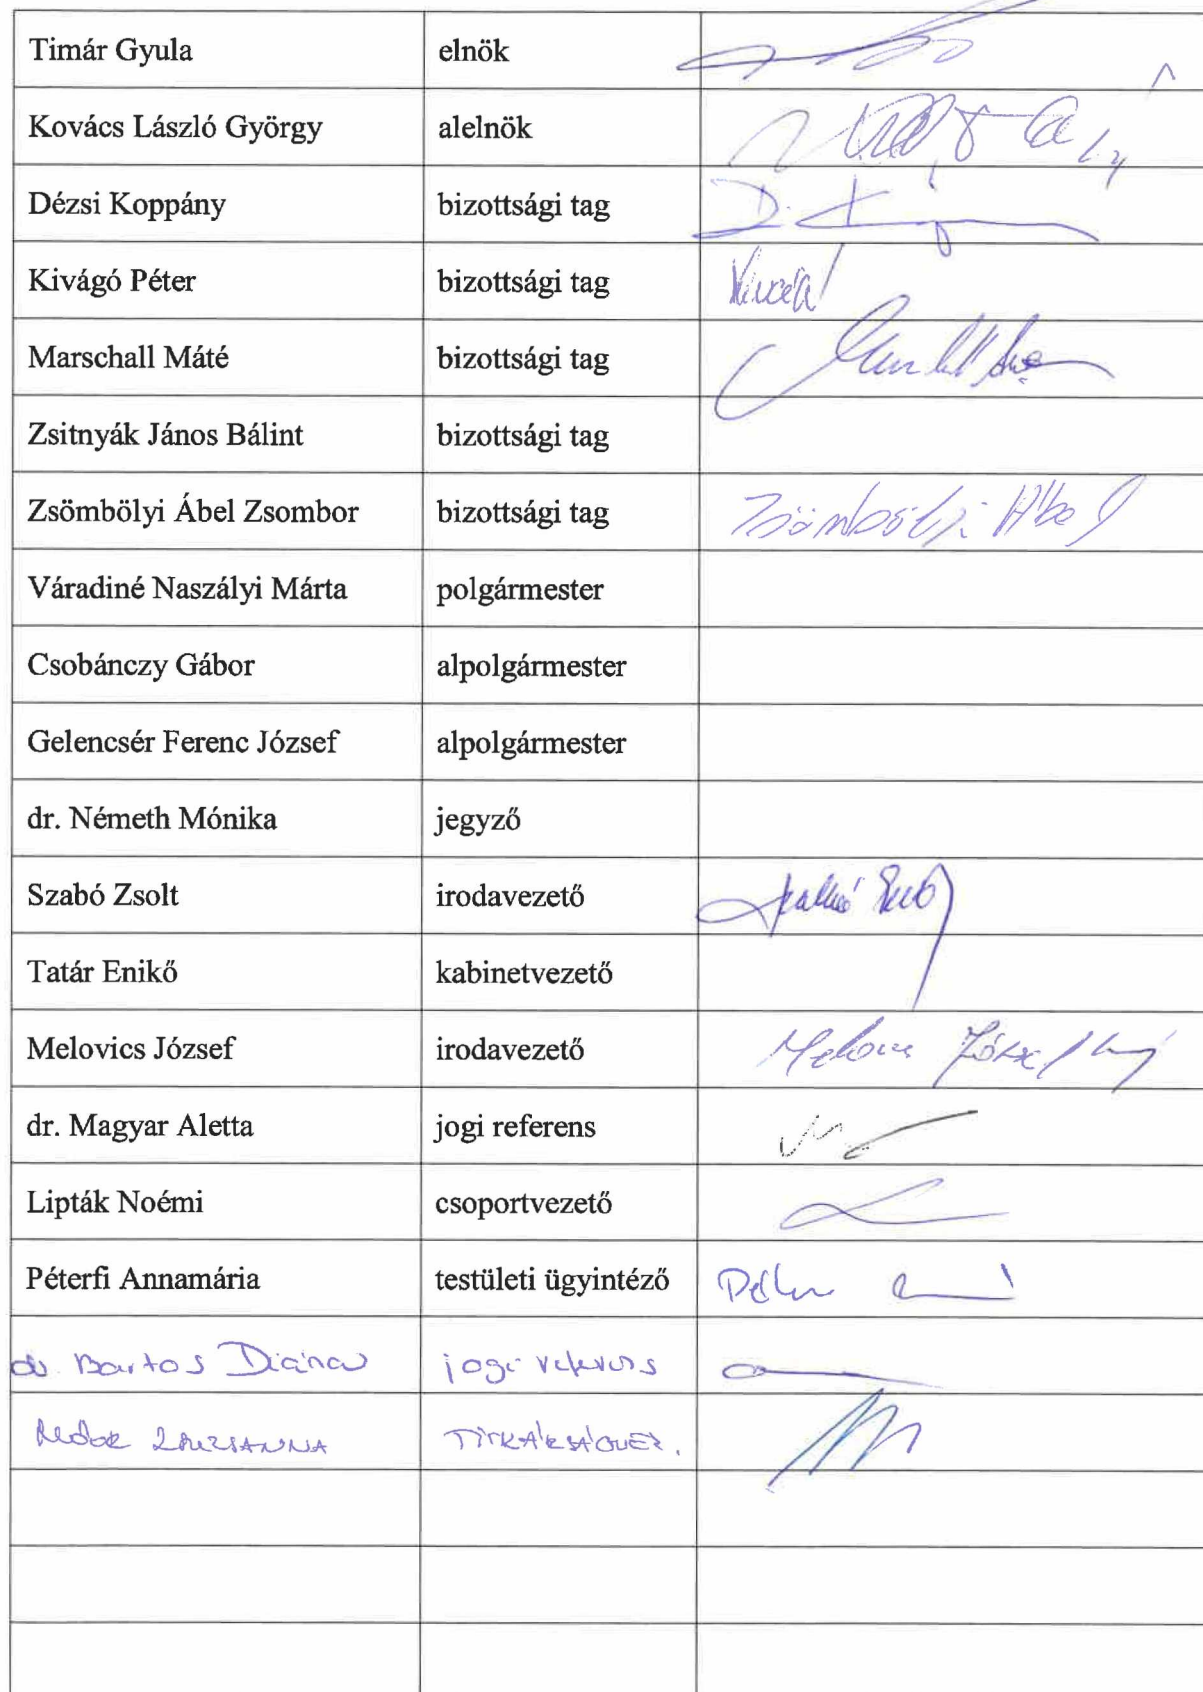 Timár Gyula elnök
Kovács László György alelnök
Dézsi Koppány bizottsági tag
Kivágó Péter bizottsági tag
Marschall Máté bizottsági tag
Zsitnyák János Bálint bizottsági tag
Zsömbölyi Ábel Zsombor bizottsági tag Zsömbölyi Ábel
Váradiné Naszályi Márta polgármester
Csobánczy Gábor alpolgármester
Gelencsér Ferenc József alpolgármester
dr. Németh Mónika jegyző
Szabó Zsolt irodavezető
Tatár Enikő kabinetvezető
Melovics József irodavezető
dr. Magyar Aletta jogi referens
Lipták Noémi csoportvezető
Péterfi Annamária testületi ügyintéző
dr. Bartos Diána jogi referens
ZSUZSANNA